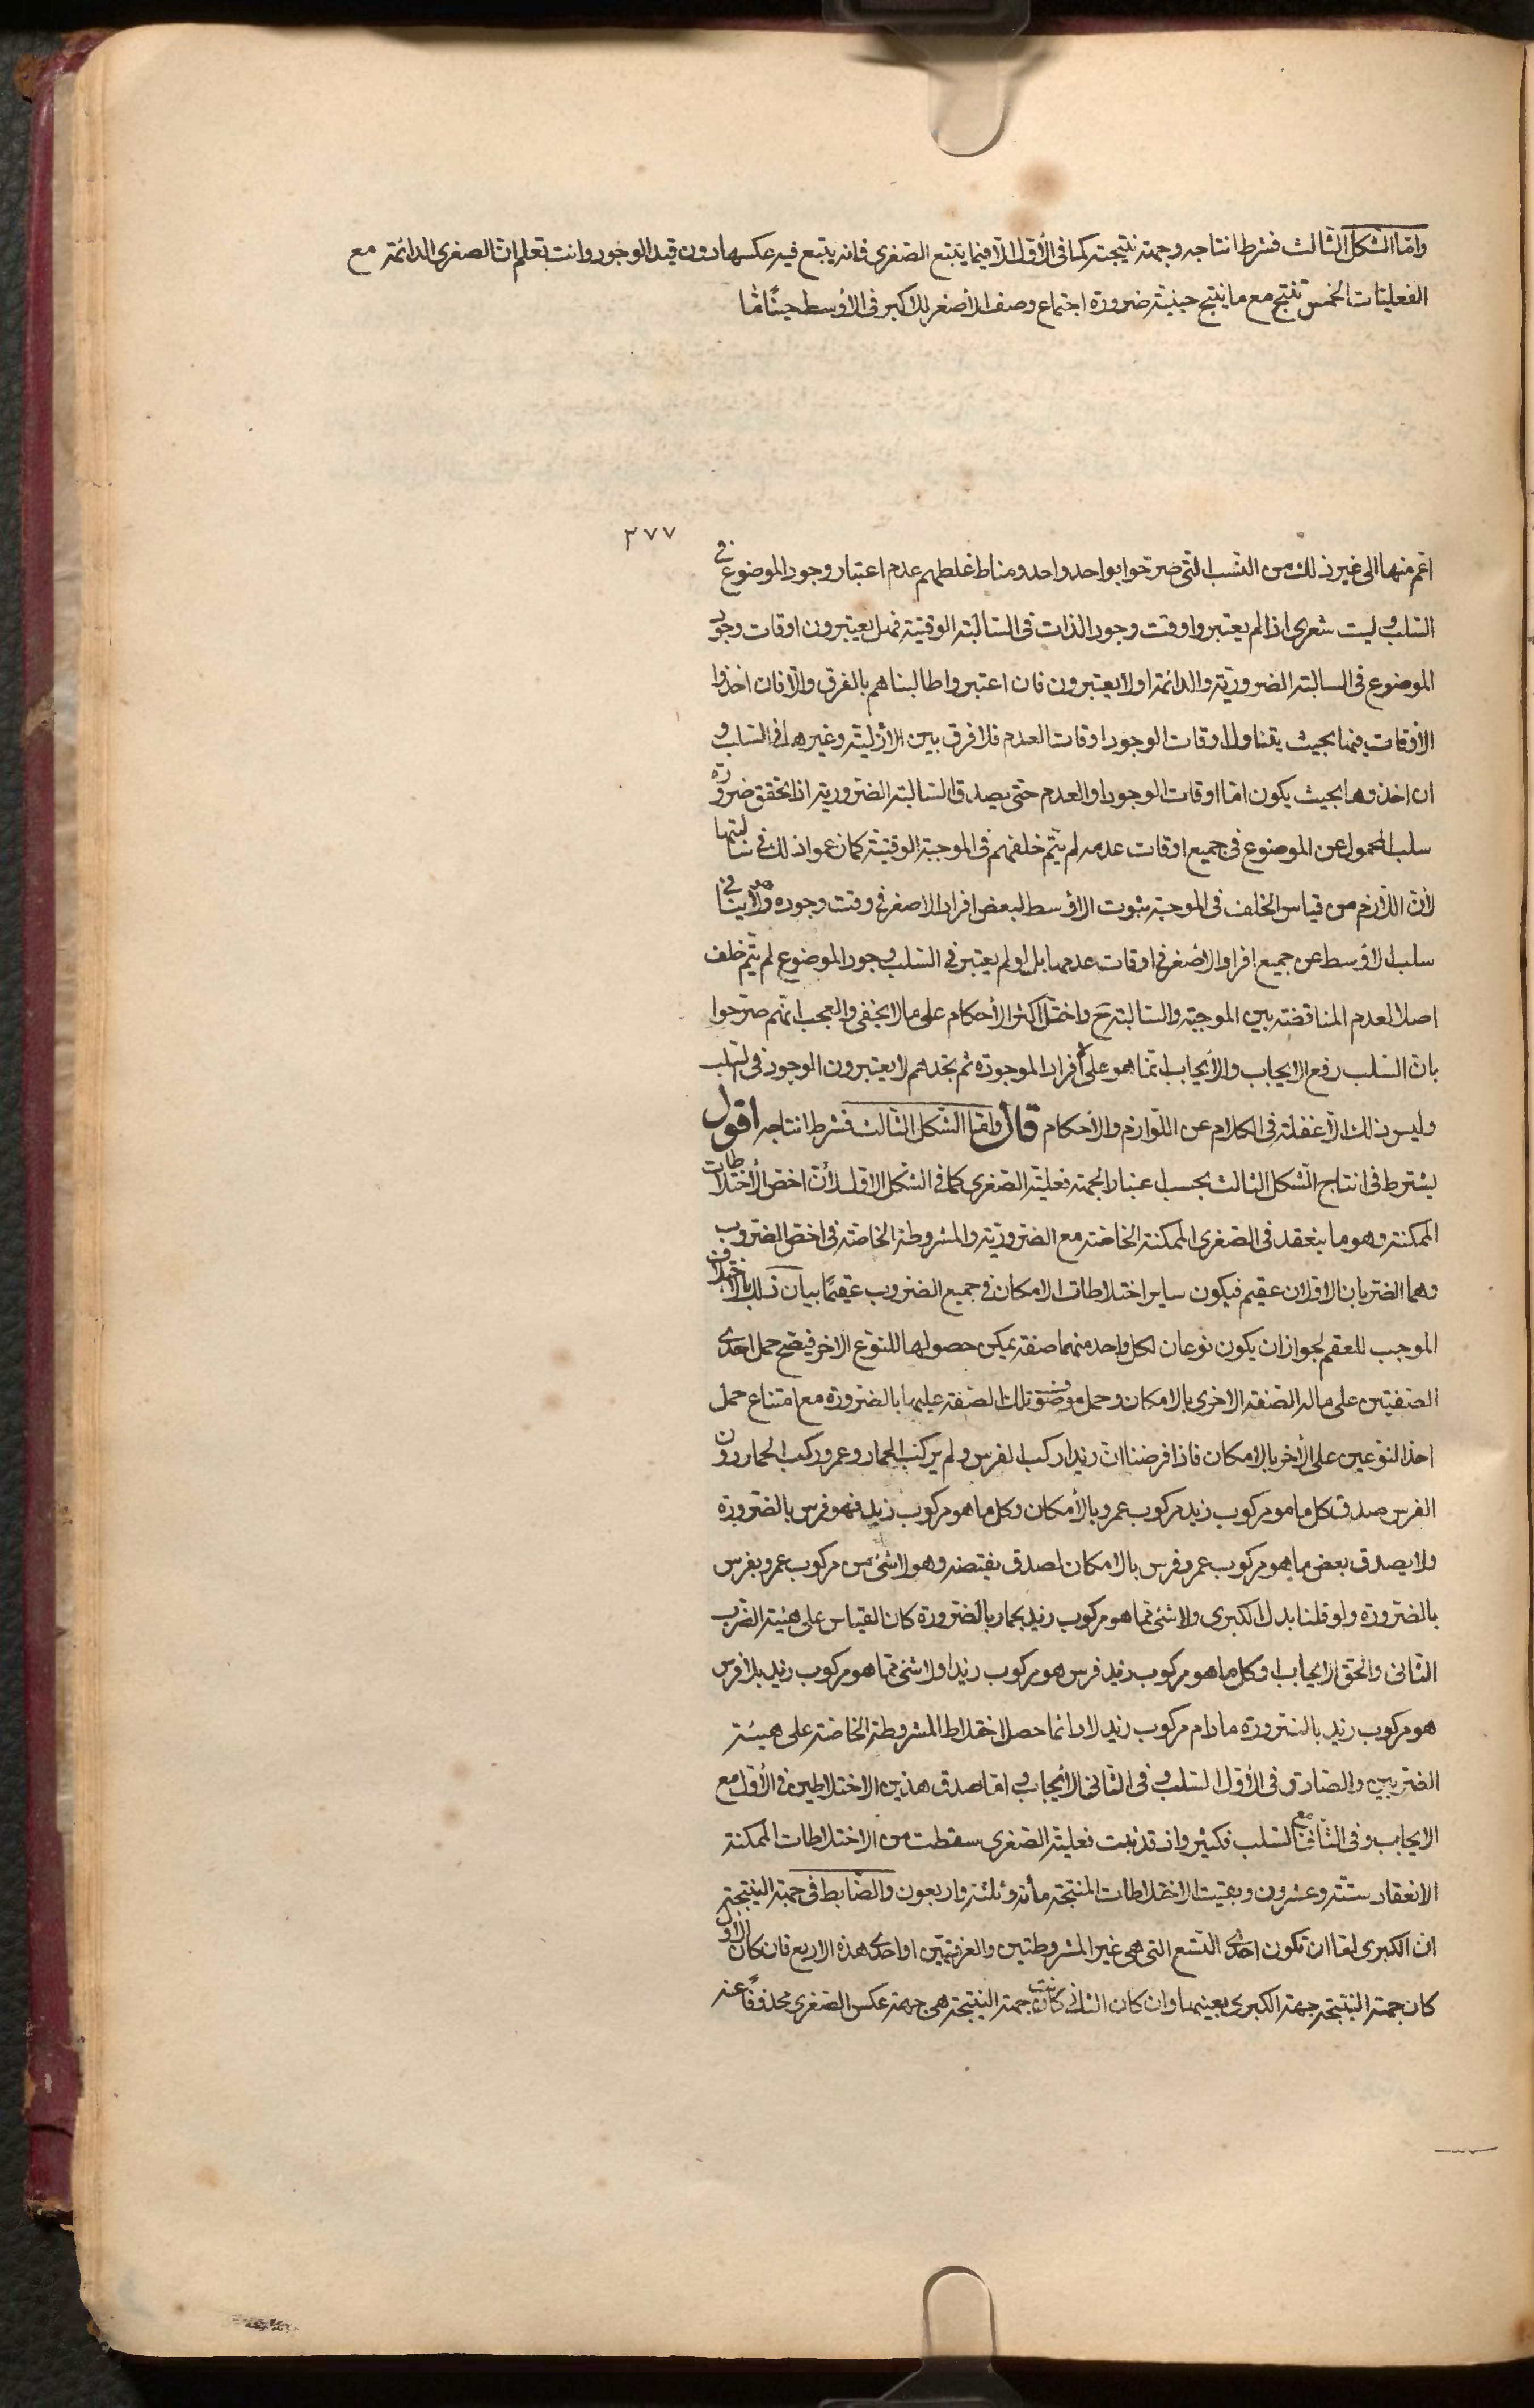 وامّا الشكل الثالث فشرط انتاجه وجهة نتيجته كما فى الأوّل الّا فيما يتبع الصّغرى فانه يتبع فيه عكسها دون قيد الوجود وانت تعلم انّ الصغرى الدائمة مع
الفعليّات الخمس تنتج مع ما ينتج حينيّة ضرورة اجتماع وصف الأصغر للاكبر فى الأوسط حينًا مّا
٣٧٧
اعم منها الى غير ذلك من النسب الّتى صرّحوا بواحد واحد ومناط غلطهم عدم اعتبار وجود الموضوع فى
السّلب وليت شعرى اذا لم يعتبروا وقت وجود الذات فى السّالبة الوقتيّة فهل يعتبرون اوقات وجود
الموضوع فى السالبة الضروريّة والدائمة اولا يعتبرون فان اعتبروا طالبناهم بالفرق والّا فان اخذوا
الأوقات فيها بحيث يتناول اوقات الوجود اوقات العدم فلا فرق بين الأزليّة وغيرها فى السّلب و
ان اخذوها بحيث يكون امّا اوقات الوجود او العدم حتى يصدق السّالبة الضّروريّة اذا تحقق ضرورة
سلب المحمول عن الموضوع فى جميع اوقات عدمه لم يتمّ خلفهم فى الموجبة الوقتيّة كما زعموا ذلك فى سالبتها
لأنّ اللّازم من قياس الخلف فى الموجبة ثبوت الاوسط لبعض افراد الاصغر فى وقت وجوده ولا ينافى
سلب الأوسط عن جميع افراد الأصغر فى اوقات عدمها بل لو لم يعتبر فى السّلب وجود الموضوع لم يتّم خلف
اصلا لعدم المناقضة بين الموجبة والسّالبة ح واختلّ اكثر الأحكام على ما لا يخفى والعجب انّهم صرّحوا
بانّ السّلب رفع الايجاب والأيجاب انّما هو على الأفراد الموجودة ثم نجدهم لا يعتبرون الوجود فى السّلب
وليس ذلك الّا غفلة فى الكلام عن اللّوازم والأحكام قال وامّا الشكل الثّالث فشرط انتاجه اقول
يشترط فى انتاج الشّكل الثالث بحسب اعتبار الجهة فعليّة الصّغرى كما فى الشّكل الاوّل لأنّ اخصّ الأختلاطات
الممكنة وهو ما ينعقد فى الصّغرى الممكنة الخاصّة مع الضّروريّة والمشروطة الخاصّة فى اخصّ الضّروب
وهما الضّربان الاوّلان عقيم فيكون ساير اختلاطات الامكان فى جميع الضّروب عقيمًا بيان ذلك بالاختلاف
الموجب للعقم لجواز ان يكون نوعان لكل واحد منهما صفة يمكن حصولها للنّوع الاخر فيصّح حمل احدى
الصّفتين على ماله الصّفة الاخرى بالامكان وحمل موضوع تلك الصّفة عليها بالضّرورة مع امتناع حمل
احد النّوعين على الأخر بالامكان فاذا فرضنا انّ زيدا ركب الفرس ولم يركب الحمار وعمرو ركب الحمار دون
الفرس صدق كل ما هو مركوب زيد مركوب عمرو بالأمكان وكل ما هو مركوب زيد فهو فرس بالضّرورة
ولا يصدق بعض ما هو مركوب عمرو فرس بالامكان لصدق نقيضه وهو لا شئ من مركوب عمرو بفرس
بالضّرورة ولو قلنا بدل الكبرى ولا شئ ممّا هو مركوب زيد بحمار بالضّرورة كان القياس على هيئة الضّرب
الثّانى والحقّ الأيجاب وكل ما هو مركوب زيد فرس هو مركوب زيد او لا شئ ممّا هو مركوب زيد بلا فرس
هو مركوب زيد بالضّرورة ما دام مركوب زيد لا دائما حصل اختلاط المشروطة الخاصّة على هيئة
الضّربين والصّادق فى الأوّل السّلب وفى الثّانى الأيجاب وامّا صدق هذين الاختلاطين فى الأوّل مع
الايجاب وفى الثّانى مع السّلب فكثير واذ قد ثبت فعليّة الصّغرى سقطت من الاختلاطات الممكنة
الانعقاد ستّة وعشرون وبقيت الاختلاطات المنتجة مأة وثلثة واربعون والضّابط فى جهة النّتيجة
انّ الكبرى امّا ان تكون احدى التّسع الّتى هى غير المشروطتين والعرفيّتين او احدى هذه الاربع فان كان الاول
كان جهة النّتيجة جهة الكبرى بعينها وان كان الثانى كانت جهة النّتيجة هى جهة عكس الصّغرى محذوفًا عنه